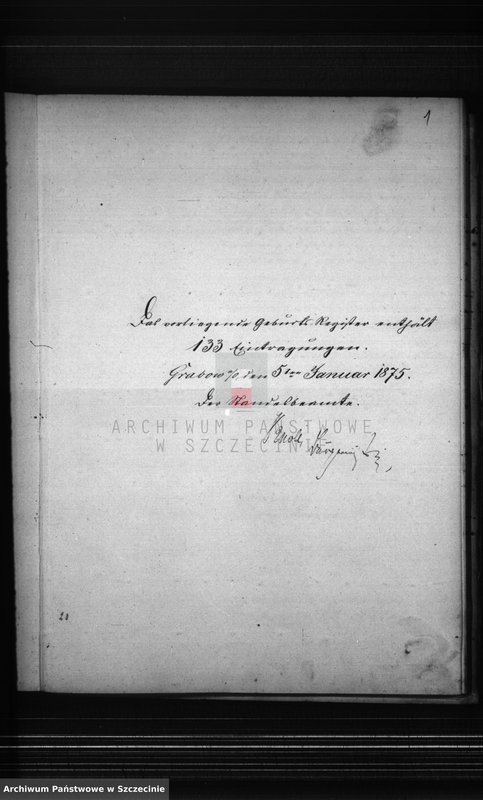 1
Das vorliegende Geburts Register enthält
133 Eintragungen.
Grabow a/O den 5ten Januar 1875.
Der Standesbeamte.
ARCHIWUM PAŃSTWOWE
W SZCZECINIE
Archiwum Państwowe w Szczecinie